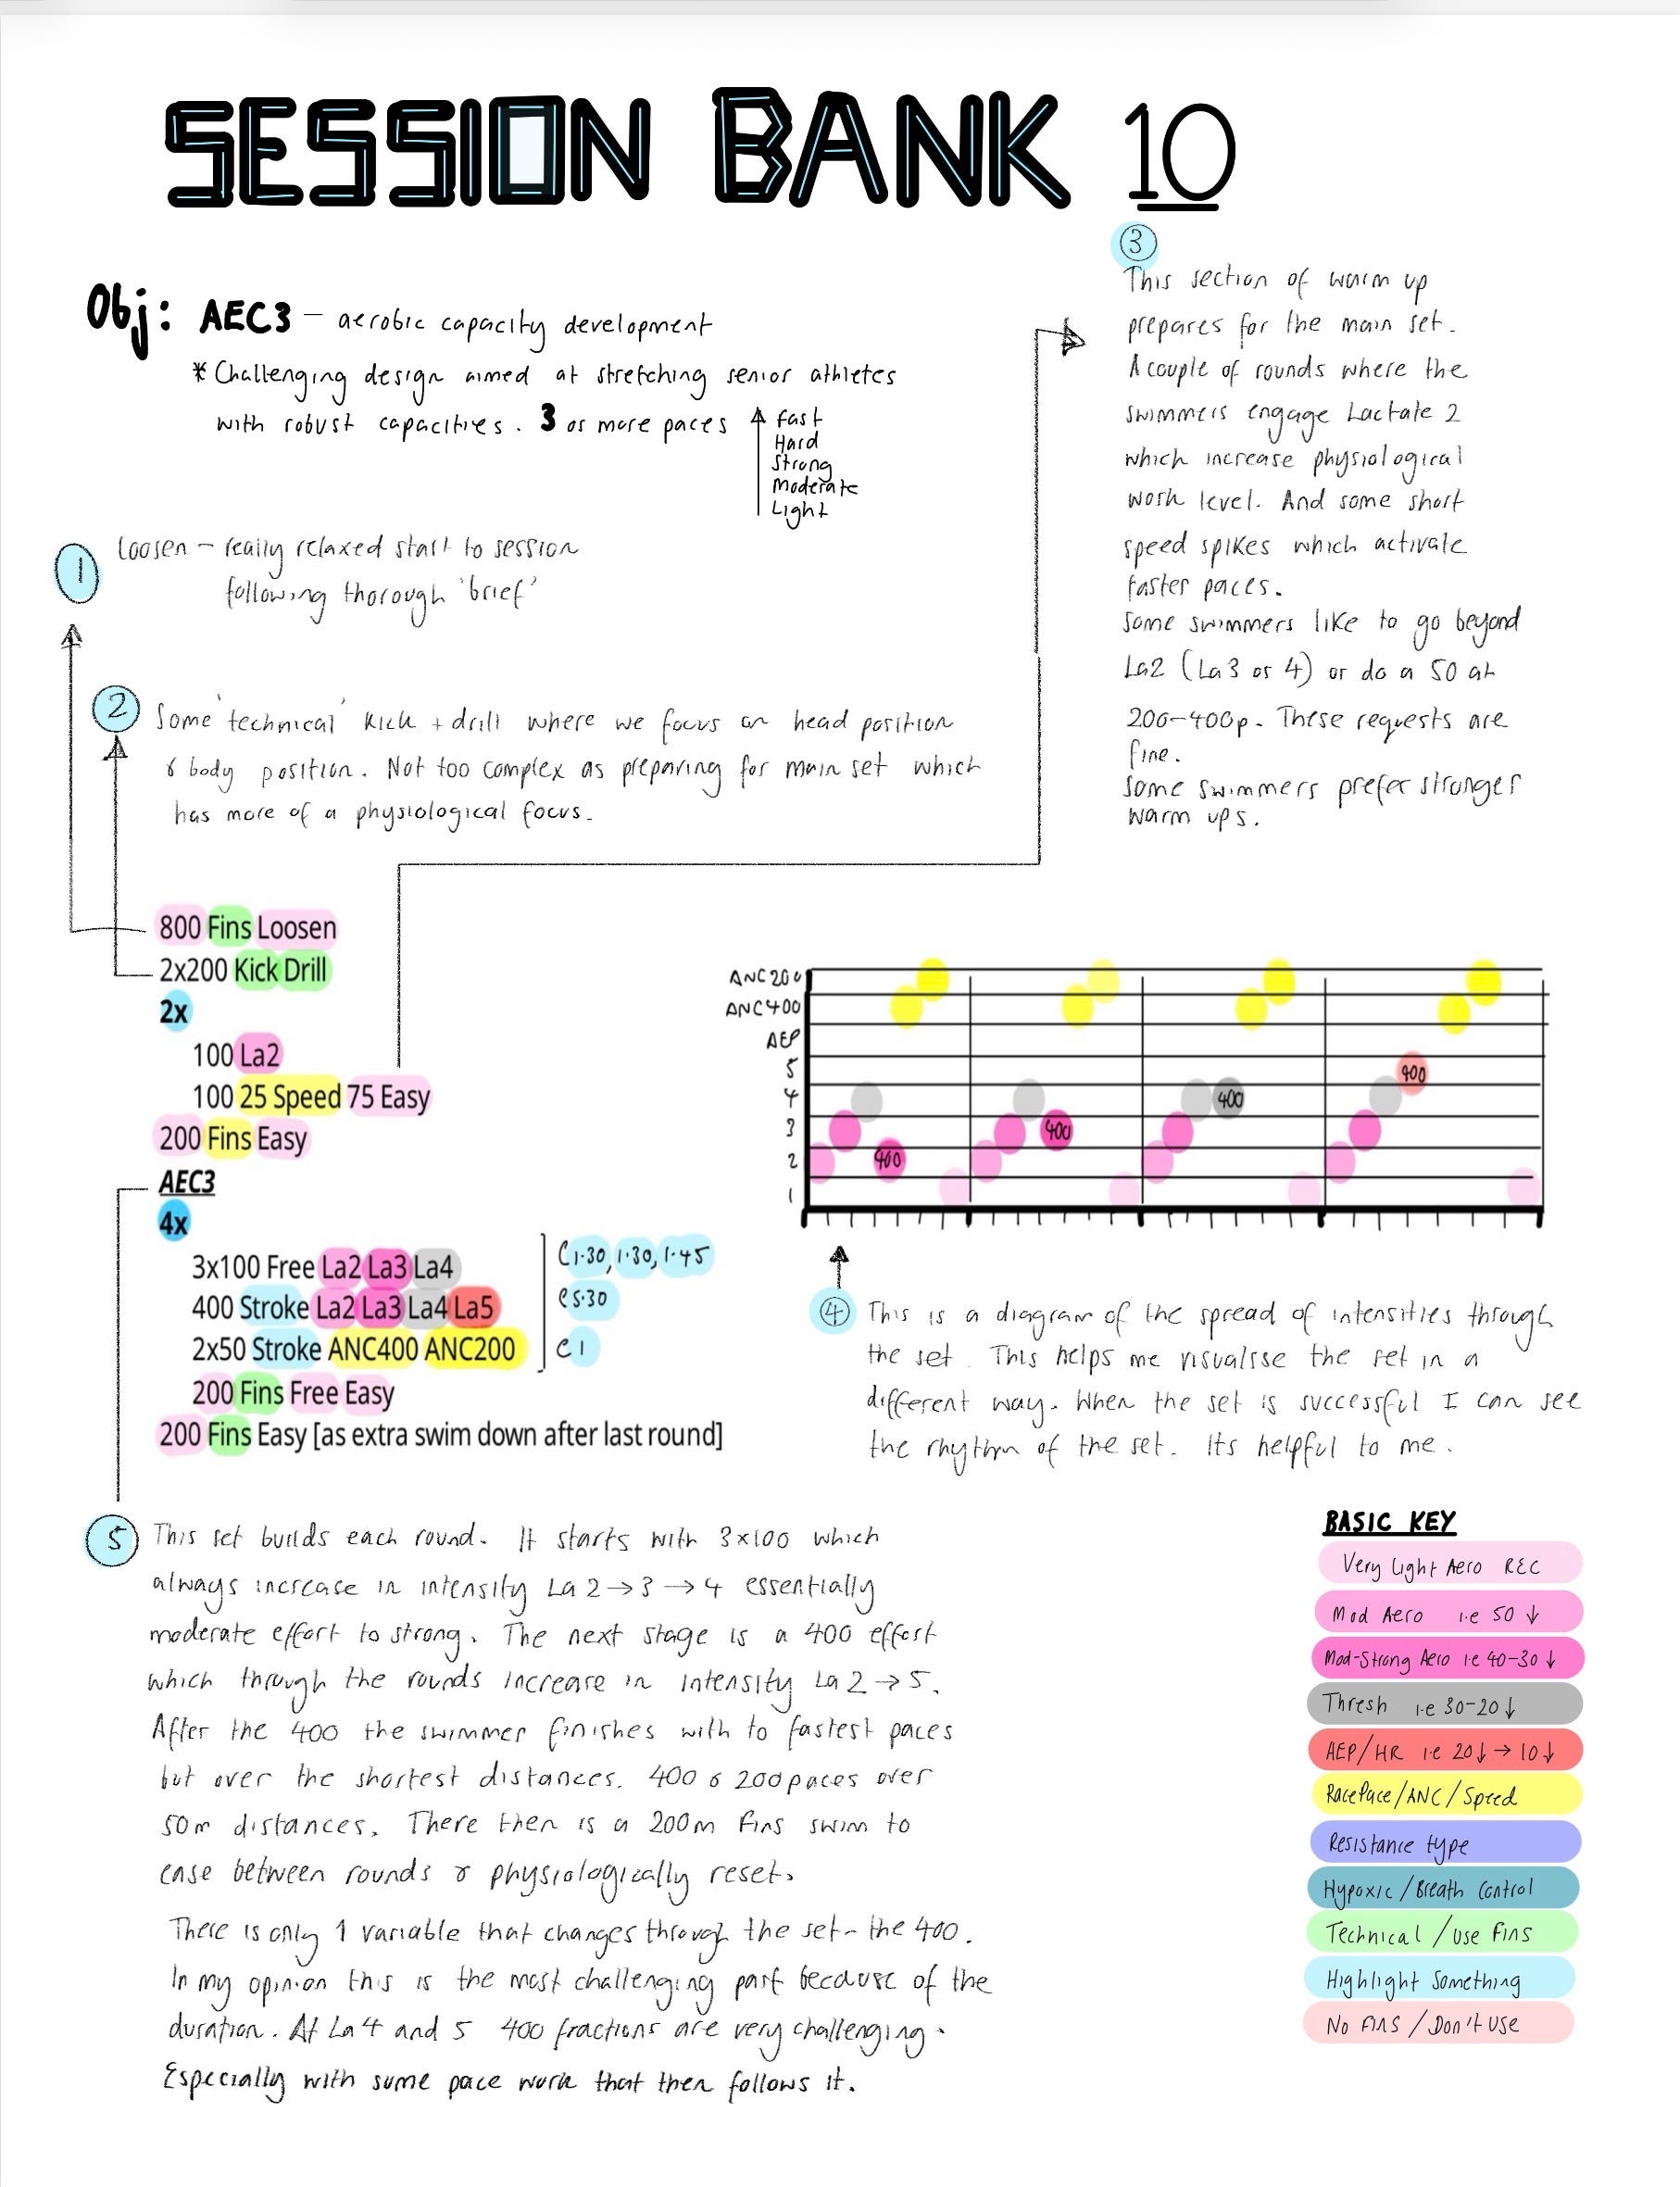 SESSION BANK 10
Obj: AEC3 – aerobic capacity development
* Challenging design aimed at stretching senior athletes
with robust capacities. 3 or more paces
fast
Hard
Strong
Moderate
Light
1 Loosen – really relaxed start to session
following thorough 'brief'
2 Some 'technical' kick + drill where we focus on head position
& body position. Not too complex as preparing for main set which
has more of a physiological focus.
3
This section of warm up
prepares for the main set.
A couple of rounds where the
swimmers engage Lactate 2
which increase physiological
work level. And some short
speed spikes which activate
faster paces.
Some swimmers like to go beyond
La2 (La3 or 4) or do a 50 at
200-400p. These requests are
fine.
Some swimmers prefer stronger
warm ups.
800 Fins Loosen
2x200 Kick Drill
2x
100 La2
100 25 Speed 75 Easy
200 Fins Easy
AEC3
4x
3x100 Free La2 La3 La4
400 Stroke La2 La3 La4 La5
2x50 Stroke ANC400 ANC200
200 Fins Free Easy
200 Fins Easy [as extra swim down after last round]
@ 1.30, 1.30, 1.45
@ 5.30
@ 1
ANC200
ANC400
AEP
5
4
3
2
1
400
400
400
400
4 This is a diagram of the spread of intensities through
the set. This helps me visualise the set in a
different way. When the set is successful I can see
the rhythm of the set. Its helpful to me.
5 This set builds each round. It starts with 3x100 which
always increase in intensity La 2 → 3 → 4 essentially
moderate effort to strong. The next stage is a 400 effort
which through the rounds increase in intensity La 2 → 5.
After the 400 the swimmer finishes with to fastest paces
but over the shortest distances. 400 & 200 paces over
50m distances. There then is a 200m Fins swim to
ease between rounds & physiologically reset.
There is only 1 variable that changes through the set - the 400.
In my opinion this is the most challenging part because of the
duration. At La4 and 5 400 fractions are very challenging.
Especially with some pace work that then follows it.
BASIC KEY
Very Light Aero REC
Mod Aero i.e 50 ↓
Mod-Strong Aero i.e 40-30 ↓
Thresh i.e 30-20 ↓
AEP/HR i.e 20↓ → 10↓
RacePace/ANC/Speed
Resistance type
Hypoxic/Breath Control
Technical/Use Fins
Highlight Something
No Fins/Don't Use